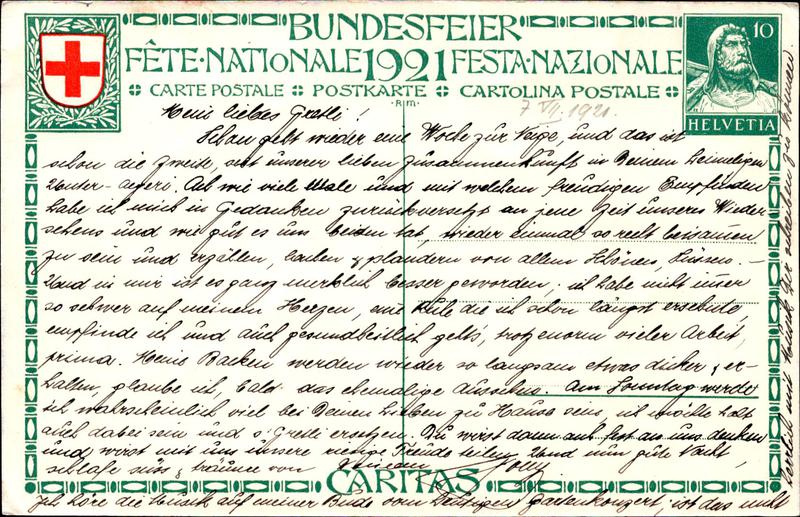 BUNDESFEIER
FÊTE·NATIONALE 1921 FESTA·NAZIONALE
CARTE POSTALE POSTKARTE CARTOLINA POSTALE
R·M
10
HELVETIA
7 VII. 1921.
Mein liebes Gretli!
Schon geht wieder eine Woche zur Neige, und das ist
schon die zweite, seit unserer lieben Zusammenkunft in Deinem heimeligen
Unter-Aegeri. Ach wie viele Male und mit welchem freudigen Empfinden
habe ich mich in Gedanken zurückversetzt an jene Zeit unseres Wieder-
sehens und wie gut es uns beiden tat, wieder einmal so recht beisammen
zu sein und erzählen, & plaudern von allem Schönen, Süssen.—
Und in mir ist es ganz merklich besser geworden; ich habe nicht immer
so schwer auf meinem Herzen, eine Ruhe die ich schon längst ersehnte,
empfinde ich und auch gesundheitlich geht's, trotz enorm vieler Arbeit,
prima. Meine Backen werden wieder so langsam etwas dicker & er-
halten, glaube ich, bald das ehemalige Aussehen. Am Sonntag werde
ich wahrscheinlich viel bei Deinen Lieben zu Hause sein, ich möchte halt
auch dabei sein und s'Gretli ersetzen. Du wirst dann auch fest an uns denken
und wirst mit uns unsere Freude teilen. Und nun gute Nacht,
schlafe süss & träume von
CARITAS
Ich höre die Musik auf meiner Bude vom heutigen Gartenkonzert, ist das nicht
herrlich mit Musik Dir schreiben zu können.